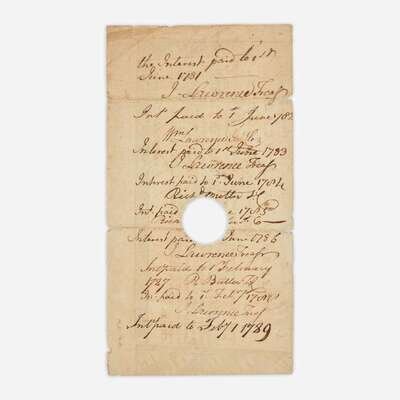 the Interest paid to 1st
June 1781
J Lawrence Treas
Intt paid to 1st June 1782
Wm Lawrence
Interest paid to 1st June 1783
J Lawrence Treas
Interest paid to 1st June 1784
Intt paid
Interest June 1786
J Lawrence Treas
Intt paid to 1 February
1787 R Butler
Int paid to 1st Feby 1788
J Lawrence Treas
Intt paid to Feby 1 1789